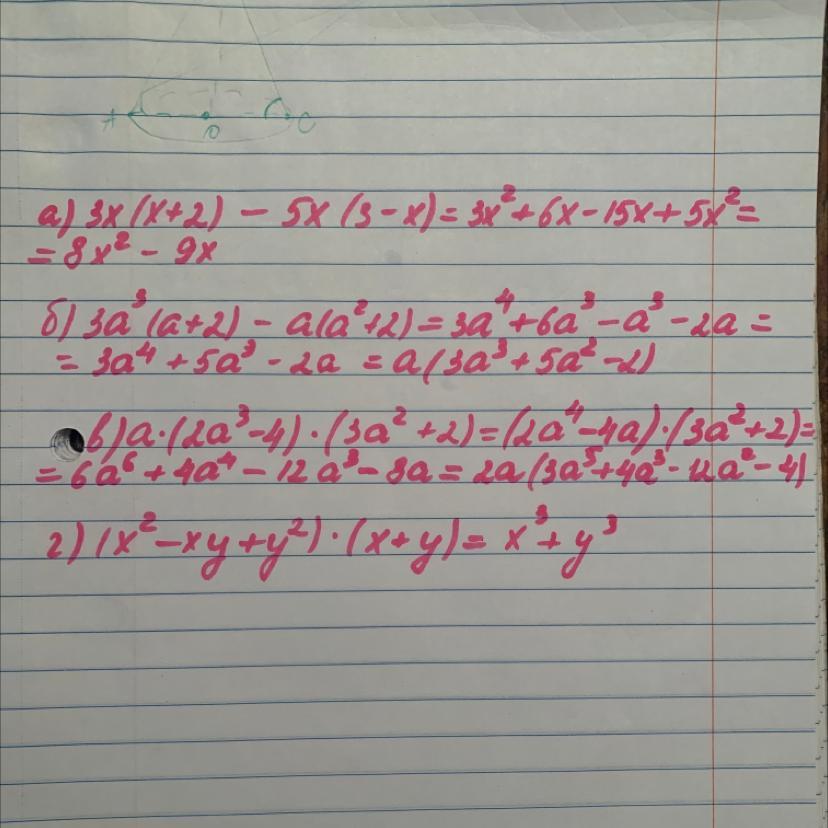 A O C
а) 3x(x+2) - 5x(3-x) = 3x² + 6x - 15x + 5x² =
= 8x² - 9x
б) 3a³(a+2) - a(a²+2) = 3a⁴ + 6a³ - a³ - 2a =
= 3a⁴ + 5a³ - 2a = a(3a³ + 5a² - 2)
в) a·(2a³-4)·(3a²+2) = (2a⁴-4a)·(3a²+2) =
= 6a⁶ + 4a⁴ - 12a³ - 8a = 2a(3a⁵ + 4a³ - 12a² - 4)
г) (x² - xy + y²)·(x+y) = x³ + y³